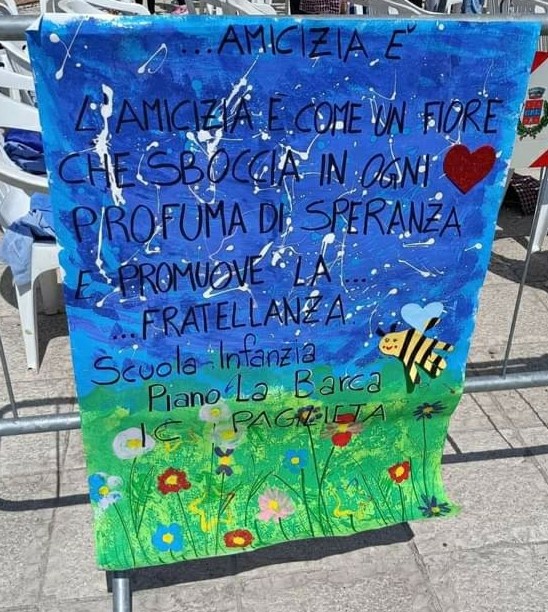 ...AMICIZIA E'
L'AMICIZIA E COME UN FIORE
CHE SBOCCIA IN OGNI
PROFUMA DI SPERANZA
E PROMUOVE LA...
...FRATELLANZA
Scuola Infanzia
Piano La Barca
IC PAGLIETA